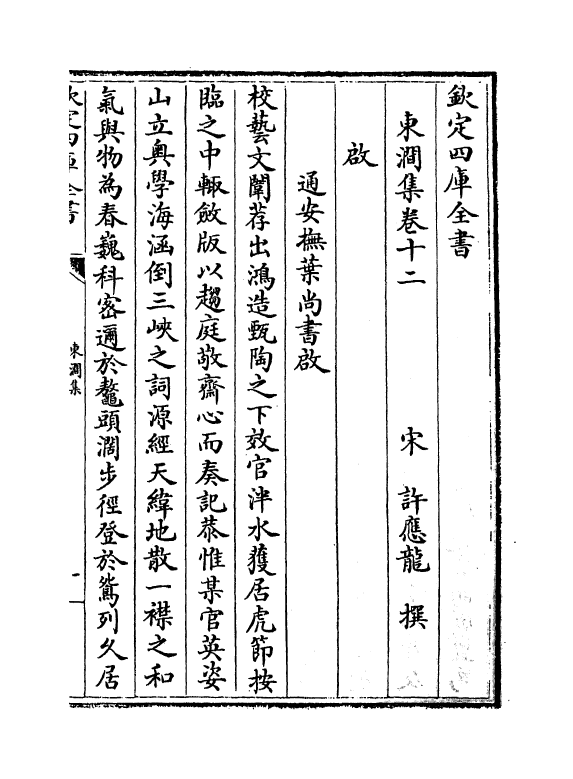 欽定四庫全書
東澗集卷十二
宋 許應龍 撰
啟
通安撫葉尚書啟
校藝文闈荐出鴻造甄陶之下效官泮水獲居虎節按
臨之中輙斂版以趨庭敬齋心而奏記恭惟某官英姿
山立奧學海涵倒三峽之詞源經天緯地散一襟之和
氣與物為春巍科密邇於鼇頭濶步徑登於鵷列久居
欽定四庫全書
東澗集
一